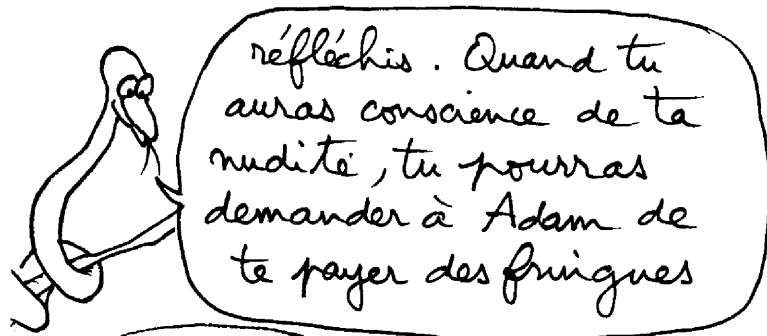 réfléchis. Quand tu
auras conscience de ta
nudité, tu pourras
demander à Adam de
te payer des fringues